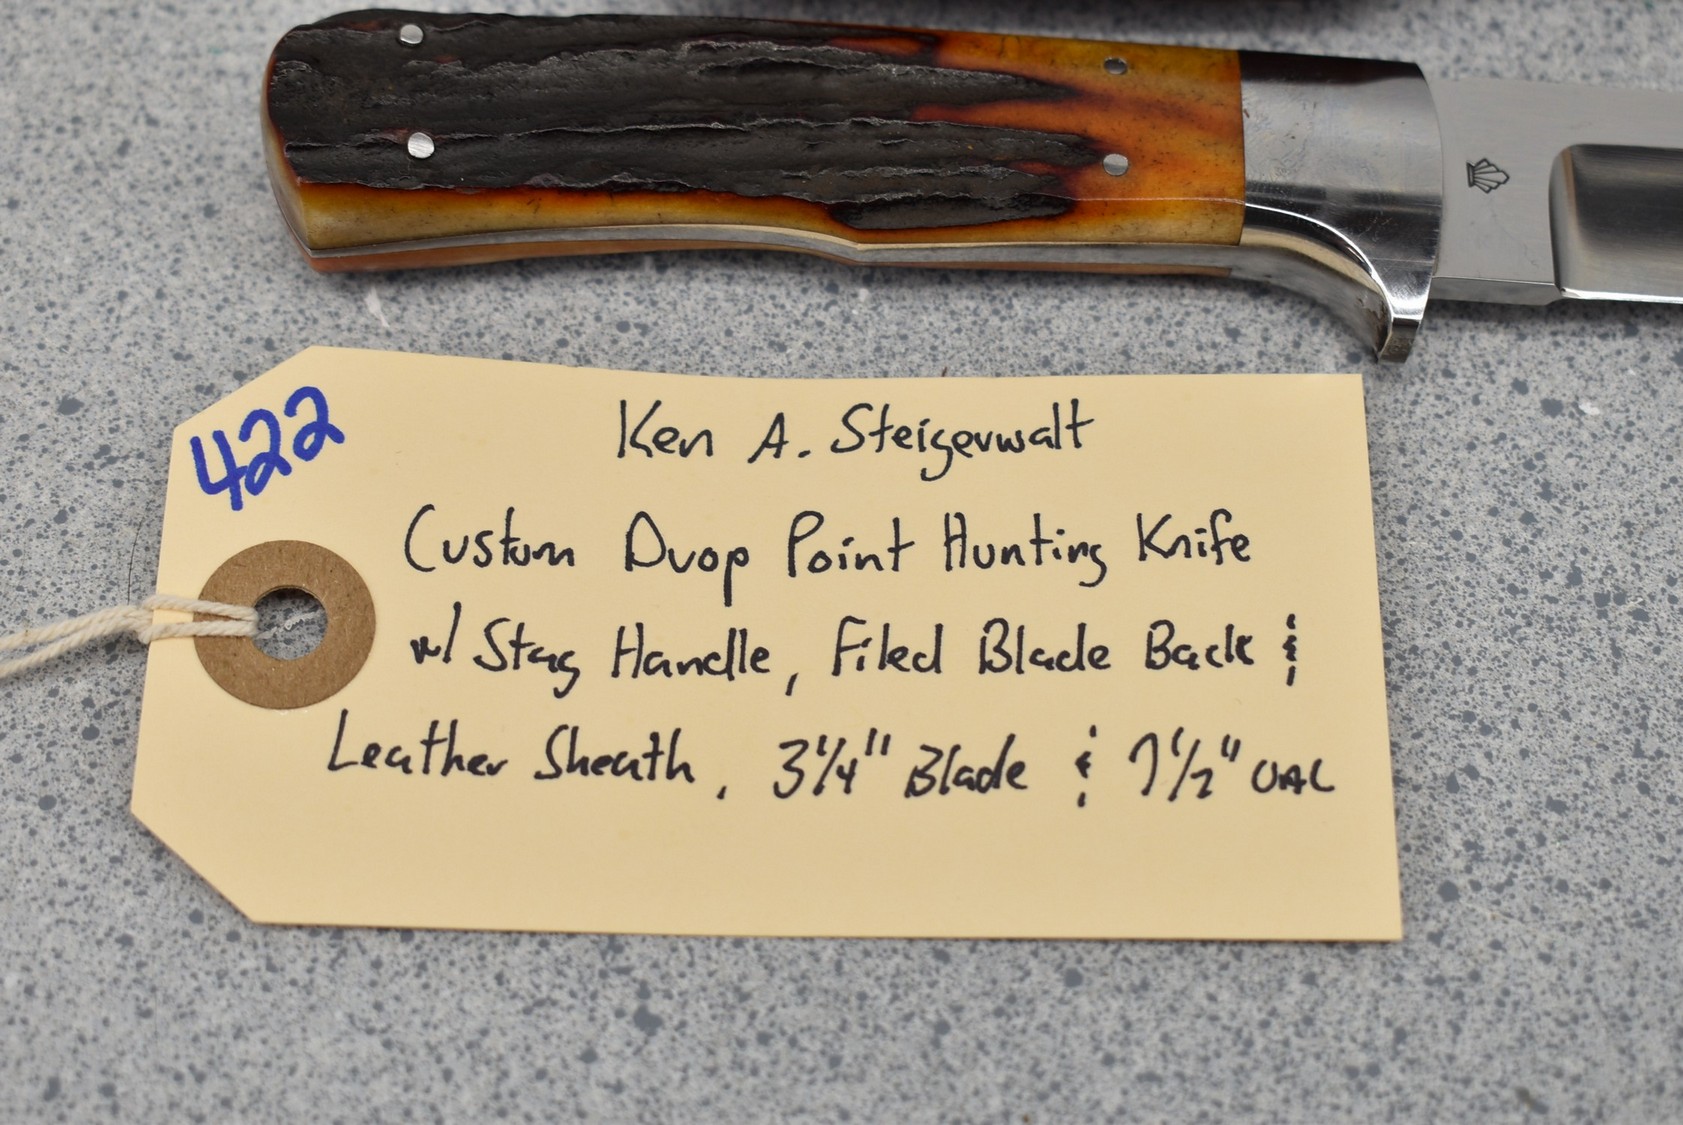 422
Ken A. Steigerwalt
Custom Drop Point Hunting Knife
w/ Stag Handle, Filed Blade Back &
Leather Sheath, 3 1/4" Blade & 7 1/2" OAL